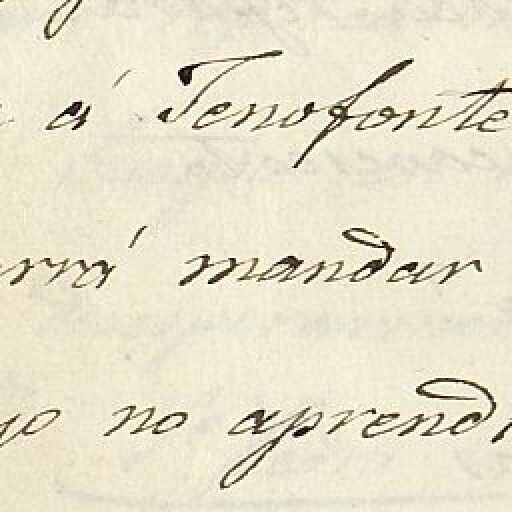 á Jenofonte
rrá mandar
yo no aprendi